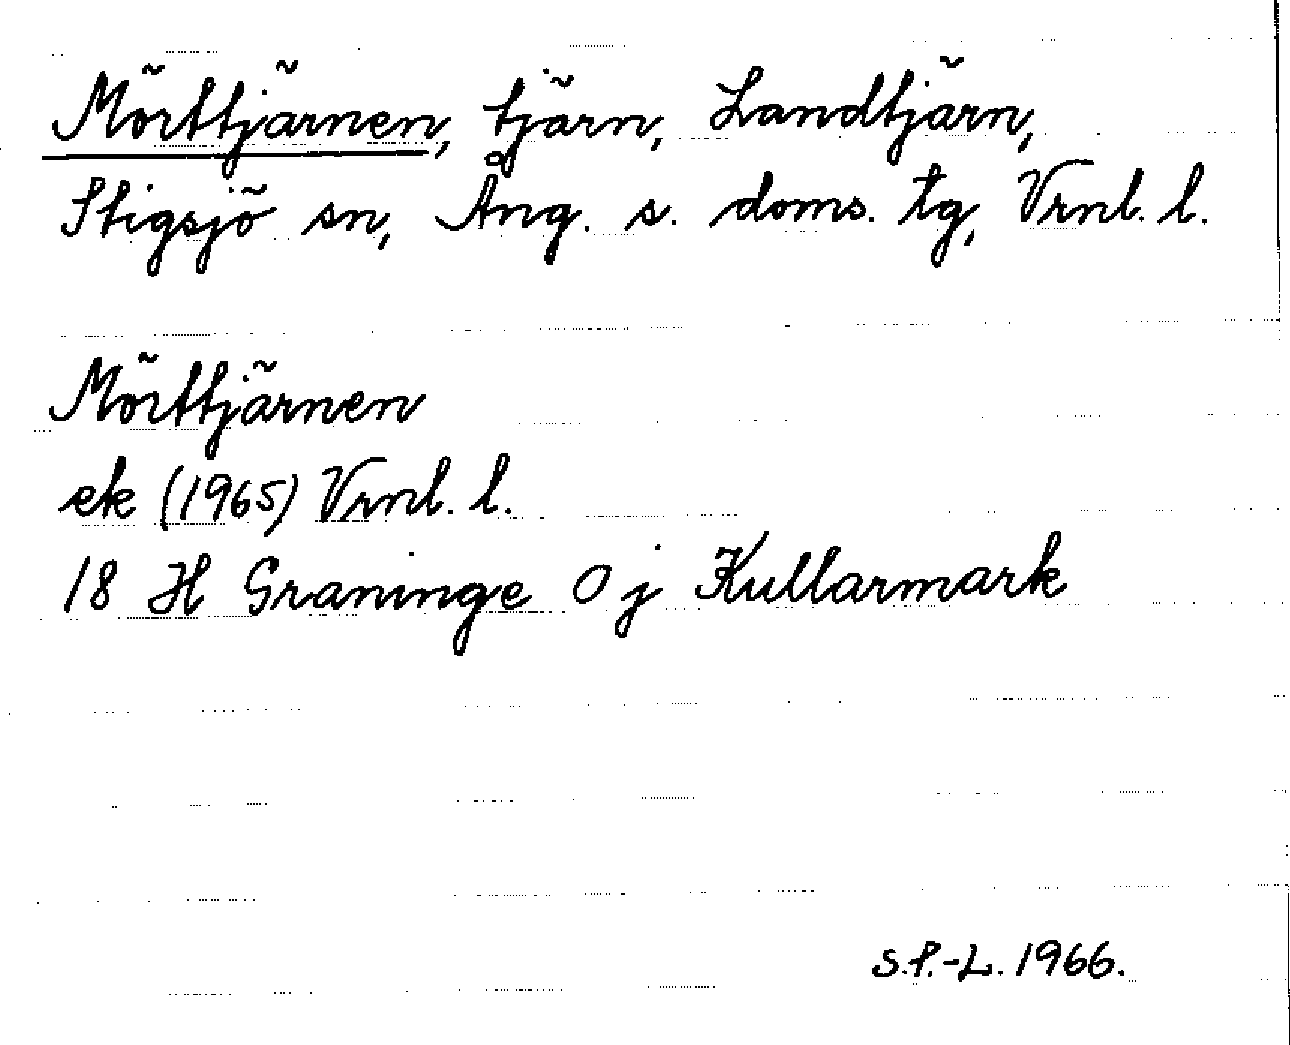 Mörttjärnen, tjärn, Landtjärn,
Stigsjö sn, Ång. s. doms. tg, Vrnl. l.
Mörttjärnen
ek (1965) Vrnl. l.
18 H Graninge O j Kullarmark
S.P.-L. 1966.